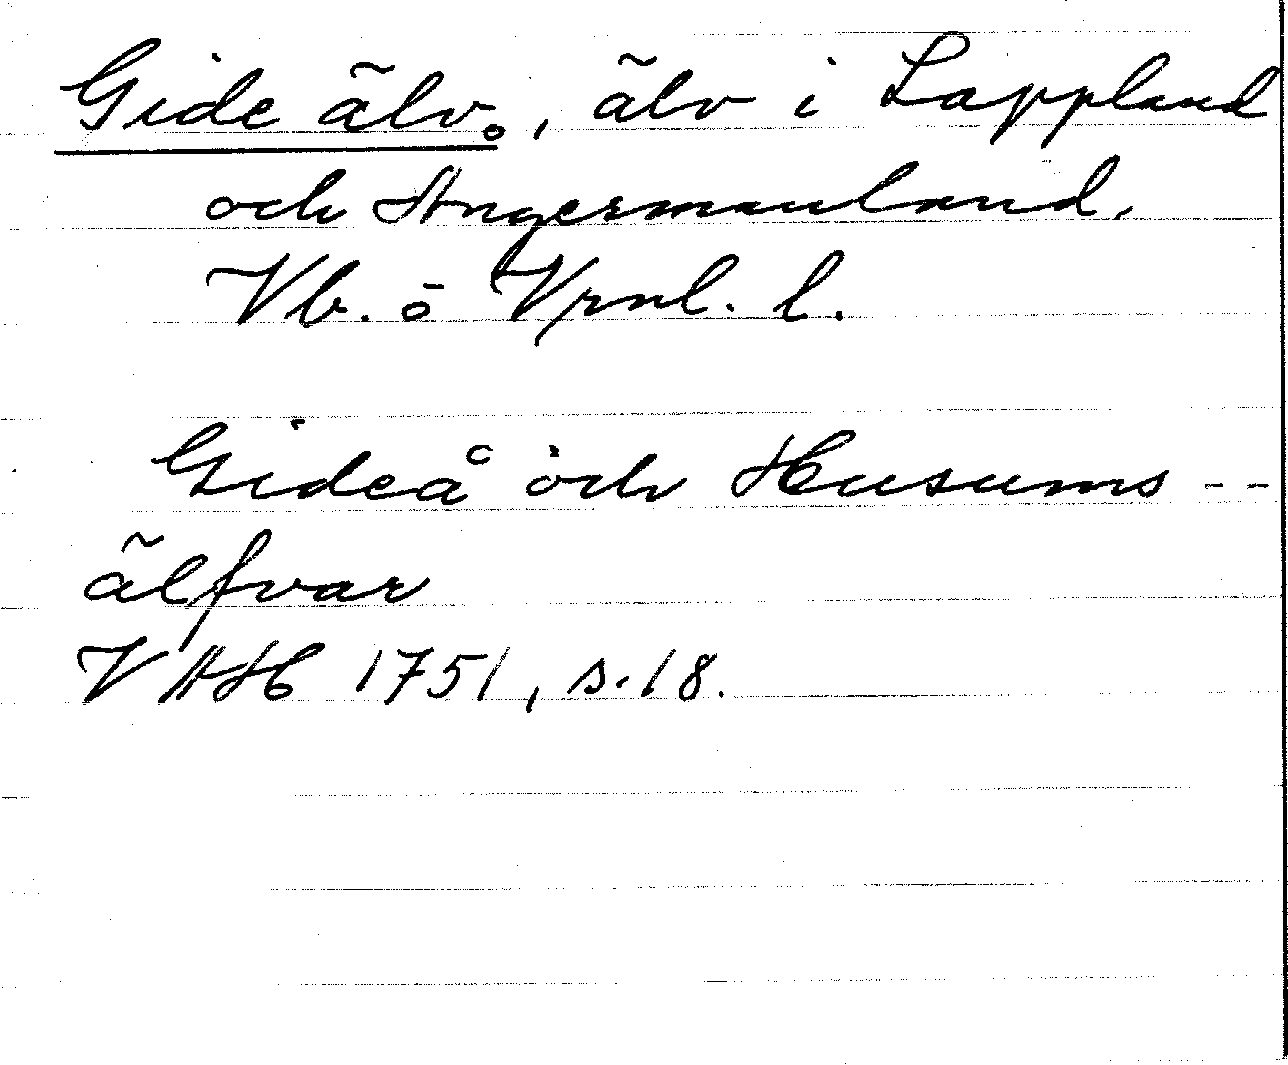 Gide älv., älv i Lappland
och Ångermanland.
Vb. o Vrnl. l.
Gideå och Husums --
älfvar
VAH 1751, s. 18.